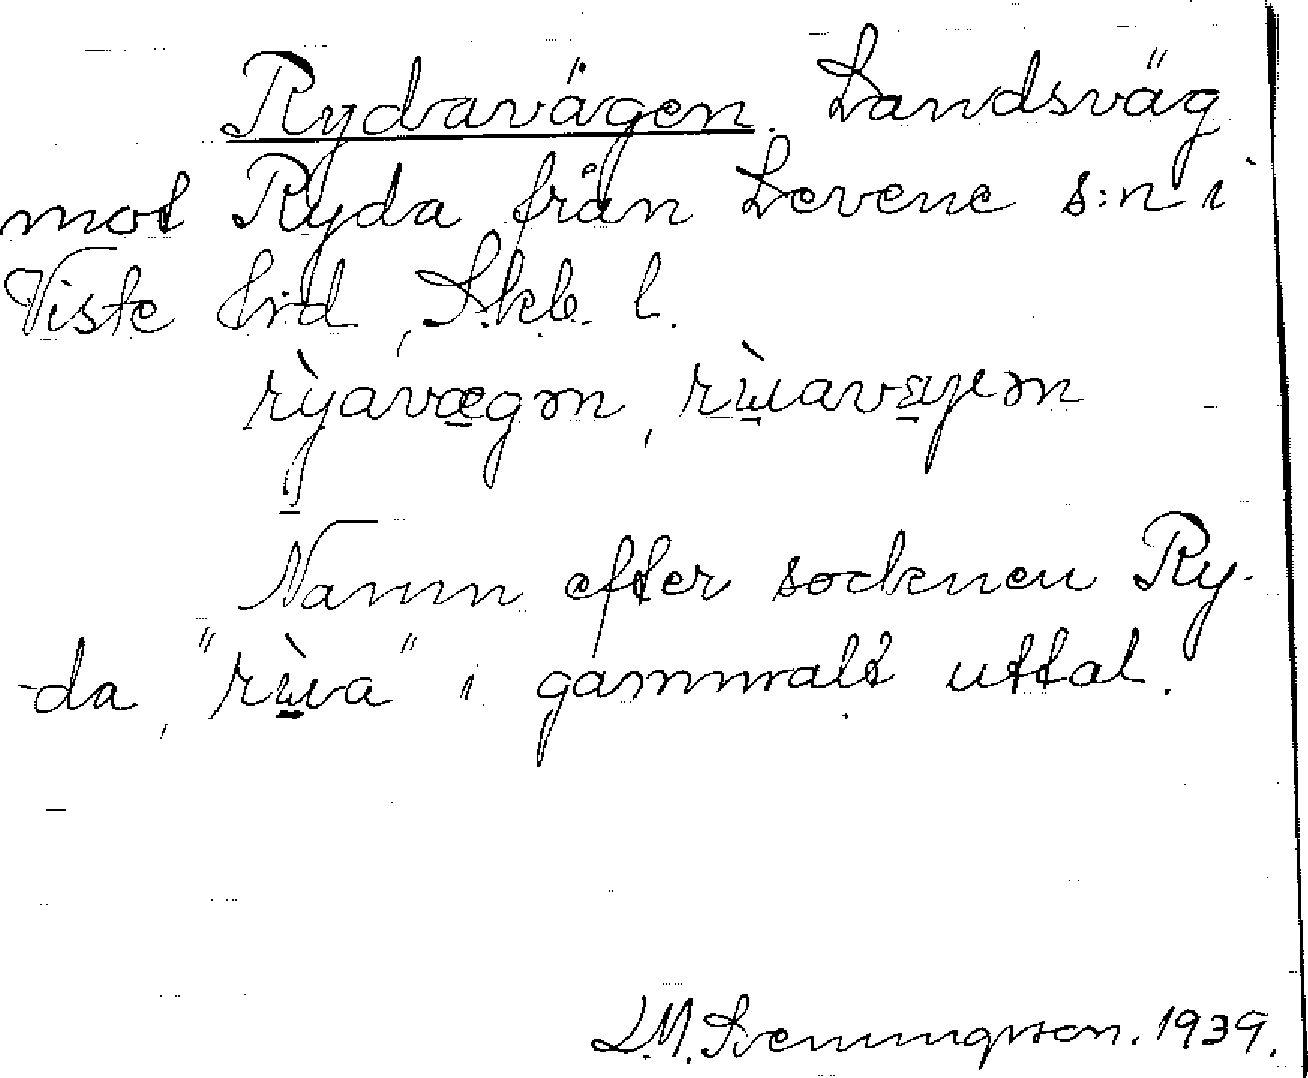 Rydavägen. Landsväg
mot Ryda från Levene s:n i
Viste hrd, Skb. l.
rỳavægən,
Namn efter socknen Ry-
da, "rɯ̀a" i gammalt uttal.
L.M. Svenungsson. 1939.